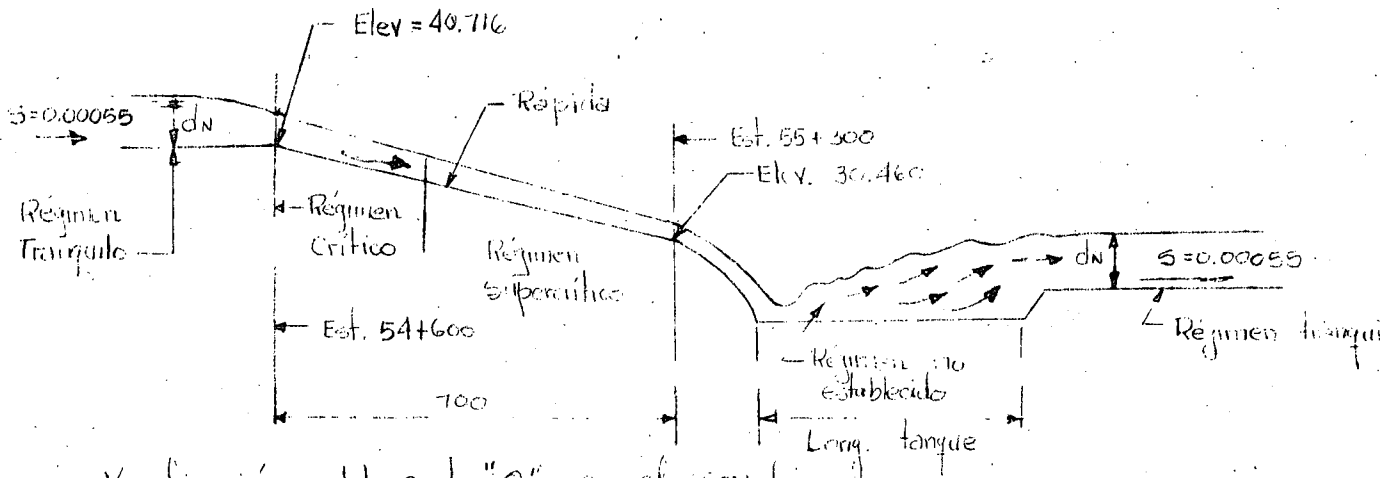 Elev = 40.716
S=0.00055
dN
Rápida
Est. 55+300
Elev. 30.460
Régimen
Tranquilo
Régimen
Crítico
Régimen
Supercrítico
dN
S=0.00055
Est. 54+600
Régimen no
establecido
Régimen tranqui
700
Long. tanque